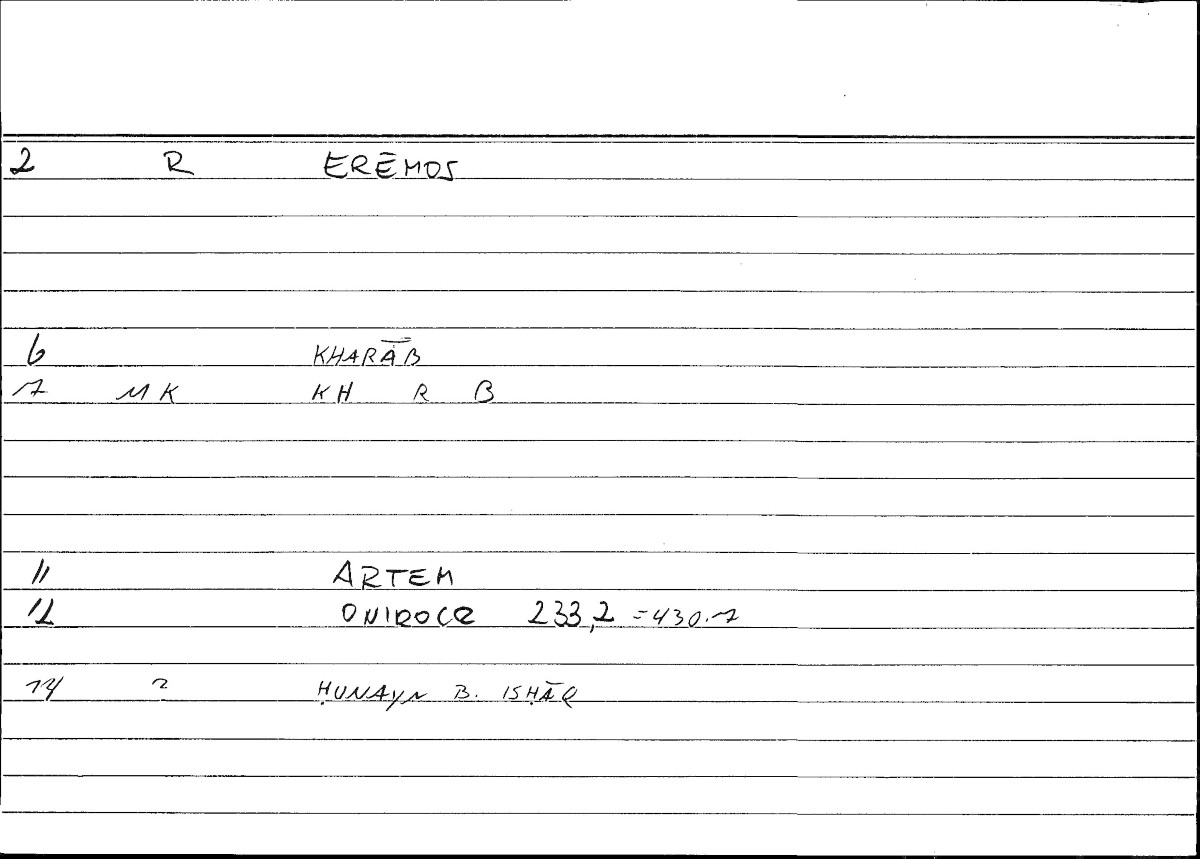 2 R ERĒMOS
6 KHARĀB
7 MK KH R B
11 ARTEM
12 ONIROCR 233,2 = 430.7
14 2 ḤUNAYN B. ISḤĀQ